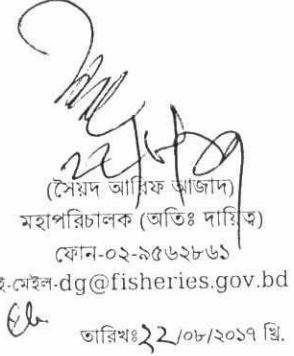 (সৈয়দ আরিফ আজাদ)
মহাপরিচালক (অতিঃ দায়িত্ব)
ফোন-০২-৯৫৬২৮৬১
ই-মেইল-dg@fisheries.gov.bd
তারিখঃ২২/০৮/২০১৭ খ্রি.